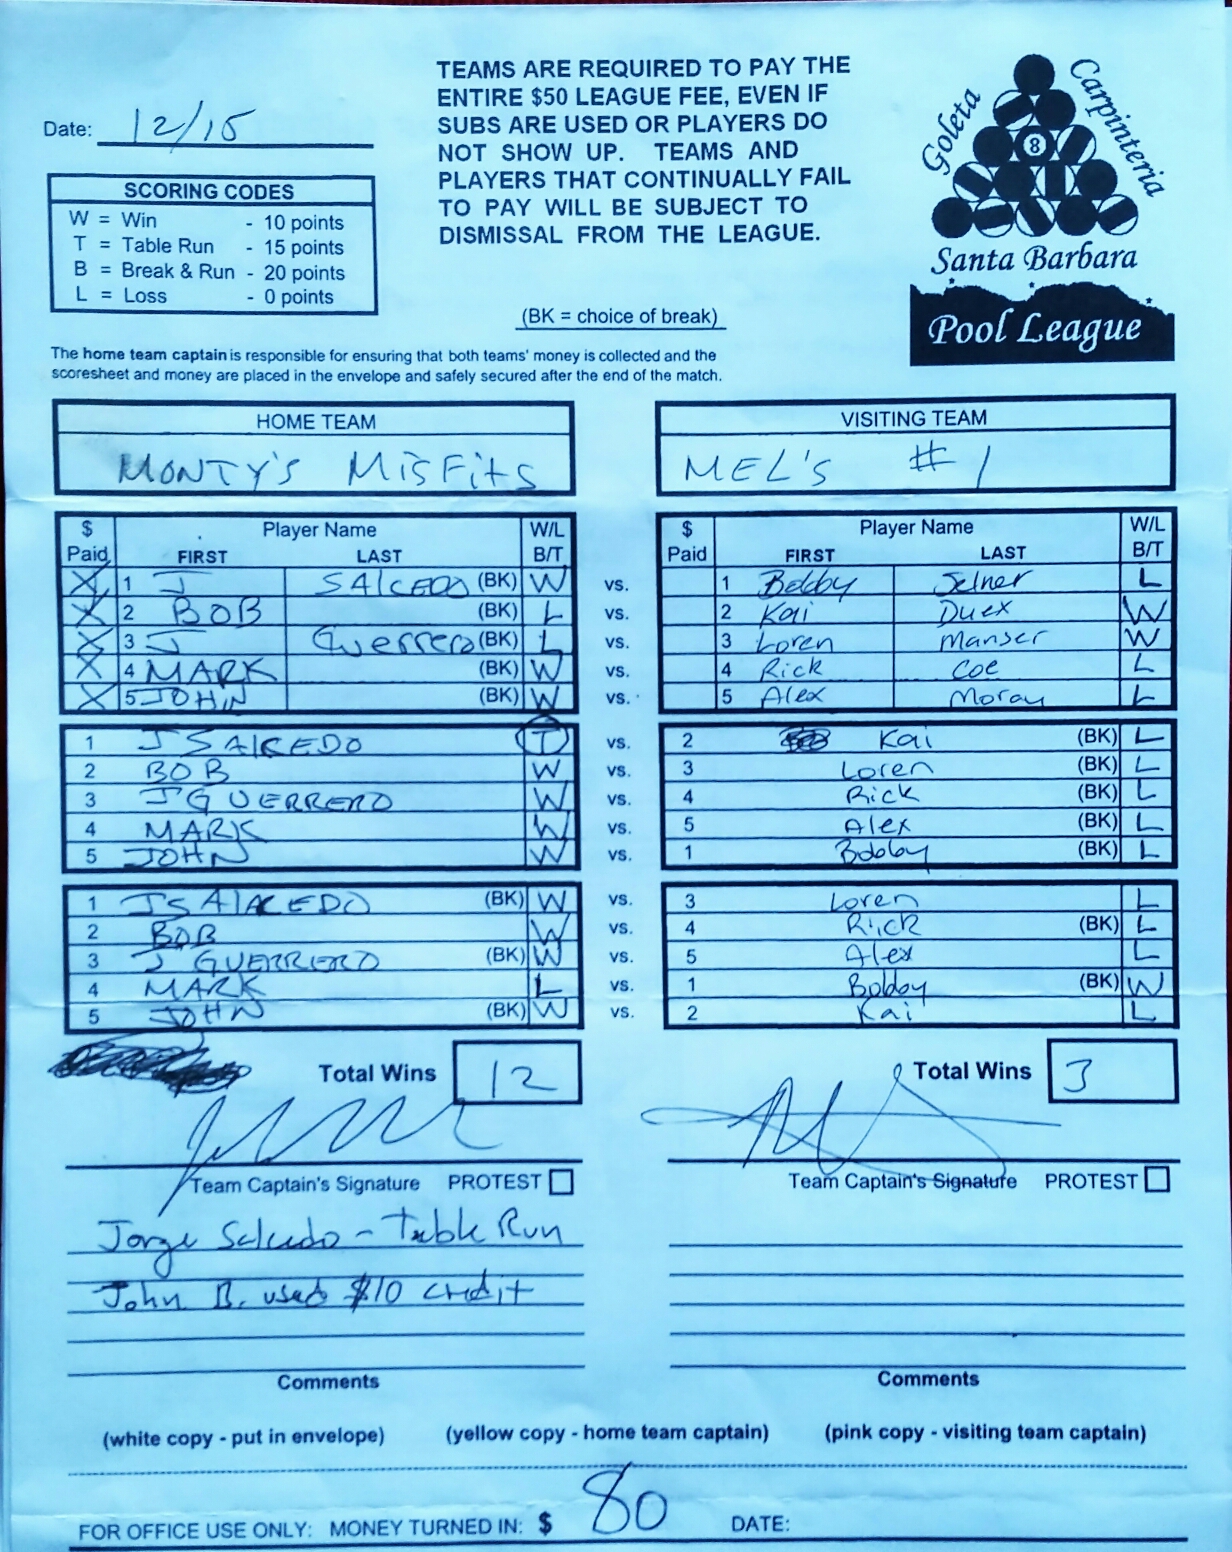 Date: 12/15
TEAMS ARE REQUIRED TO PAY THE
ENTIRE $50 LEAGUE FEE, EVEN IF
SUBS ARE USED OR PLAYERS DO
NOT SHOW UP. TEAMS AND
PLAYERS THAT CONTINUALLY FAIL
TO PAY WILL BE SUBJECT TO
DISMISSAL FROM THE LEAGUE.
Goleta
Carpinteria
8
Santa Barbara
Pool League
SCORING CODES
W = Win - 10 points
T = Table Run - 15 points
B = Break & Run - 20 points
L = Loss - 0 points
(BK = choice of break)
The home team captain is responsible for ensuring that both teams' money is collected and the
scoresheet and money are placed in the envelope and safely secured after the end of the match.
HOME TEAM
MONTY'S MISFITS
VISITING TEAM
MEL'S #1
$ Player Name W/L
Paid FIRST LAST B/T
$ Player Name W/L
Paid FIRST LAST B/T
X 1 J SAlCEDO (BK) W vs. 1 Bobby Selner L
X 2 BOB (BK) L vs. 2 Kai Duex W
X 3 J Guerrero (BK) L vs. 3 Loren Manser W
X 4 MARK (BK) W vs. 4 Rick Coe L
X 5 JOHN (BK) W vs. 5 Alex Moray L
1 J SAlCEDO T vs. 2 Kai (BK) L
2 BOB W vs. 3 Loren (BK) L
3 J GUERRERO W vs. 4 Rick (BK) L
4 MARK W vs. 5 Alex (BK) L
5 JOHN W vs. 1 Bobby (BK) L
1 J SAlCEDO (BK) W vs. 3 Loren L
2 BOB W vs. 4 Rick (BK) L
3 J GUERRERO (BK) W vs. 5 Alex L
4 MARK L vs. 1 Bobby (BK) W
5 JOHN (BK) W vs. 2 Kai L
Total Wins 12
Total Wins 3
Team Captain's Signature PROTEST
Team Captain's Signature PROTEST
Jorge Salcedo - Table Run
John B. used $10 credit
Comments
Comments
(white copy - put in envelope) (yellow copy - home team captain) (pink copy - visiting team captain)
FOR OFFICE USE ONLY: MONEY TURNED IN: $ 80 DATE: